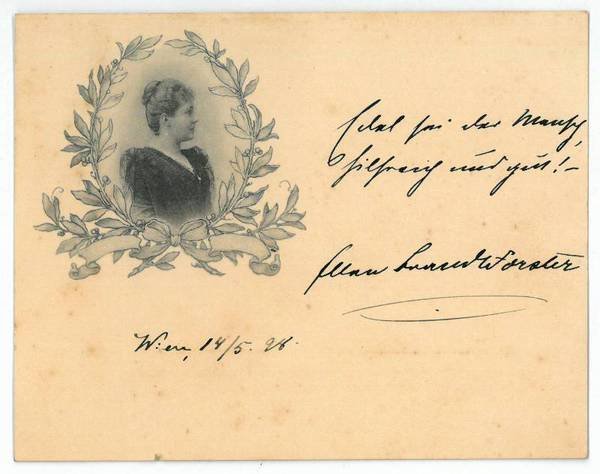 Edel sei der Mensch,
hilfreich und gut! –
Ellen Brandt Forster
Wien, 14/5. 98.